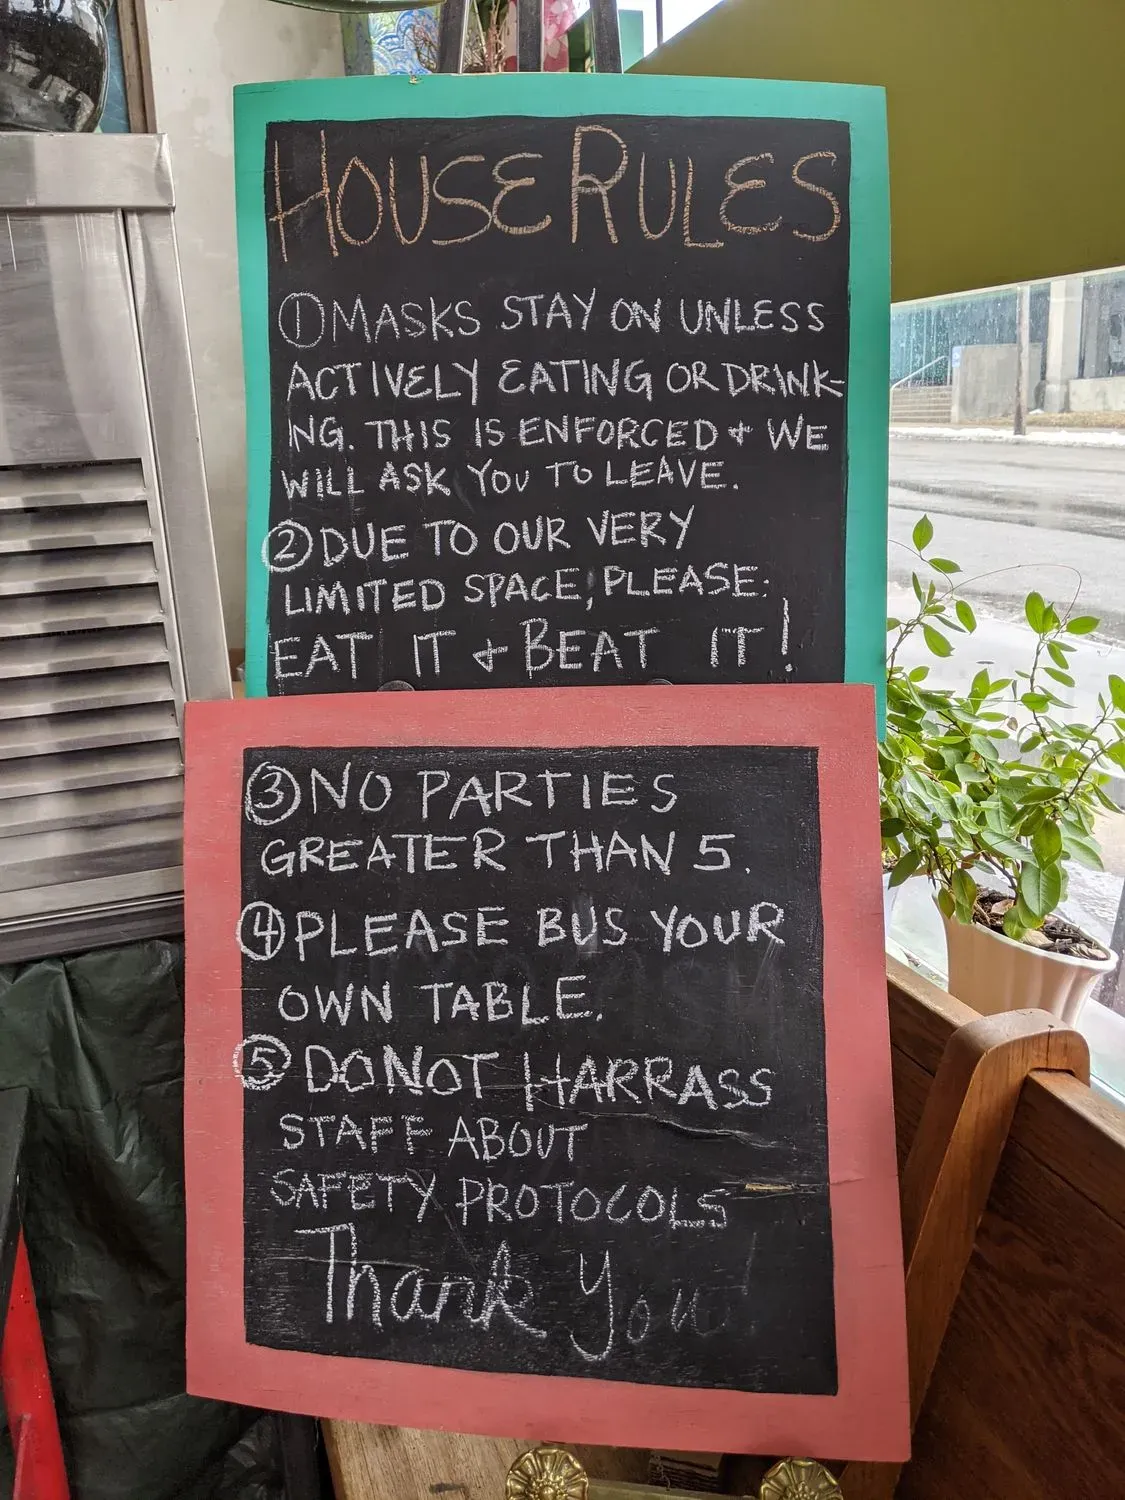 HOUSE RULES
① MASKS STAY ON UNLESS
ACTIVELY EATING OR DRINK-
ING. THIS IS ENFORCED + WE
WILL ASK YOU TO LEAVE.
② DUE TO OUR VERY
LIMITED SPACE, PLEASE:
EAT IT + BEAT IT!
③ NO PARTIES
GREATER THAN 5.
④ PLEASE BUS YOUR
OWN TABLE.
⑤ DO NOT HARRASS
STAFF ABOUT
SAFETY PROTOCOLS
Thank You